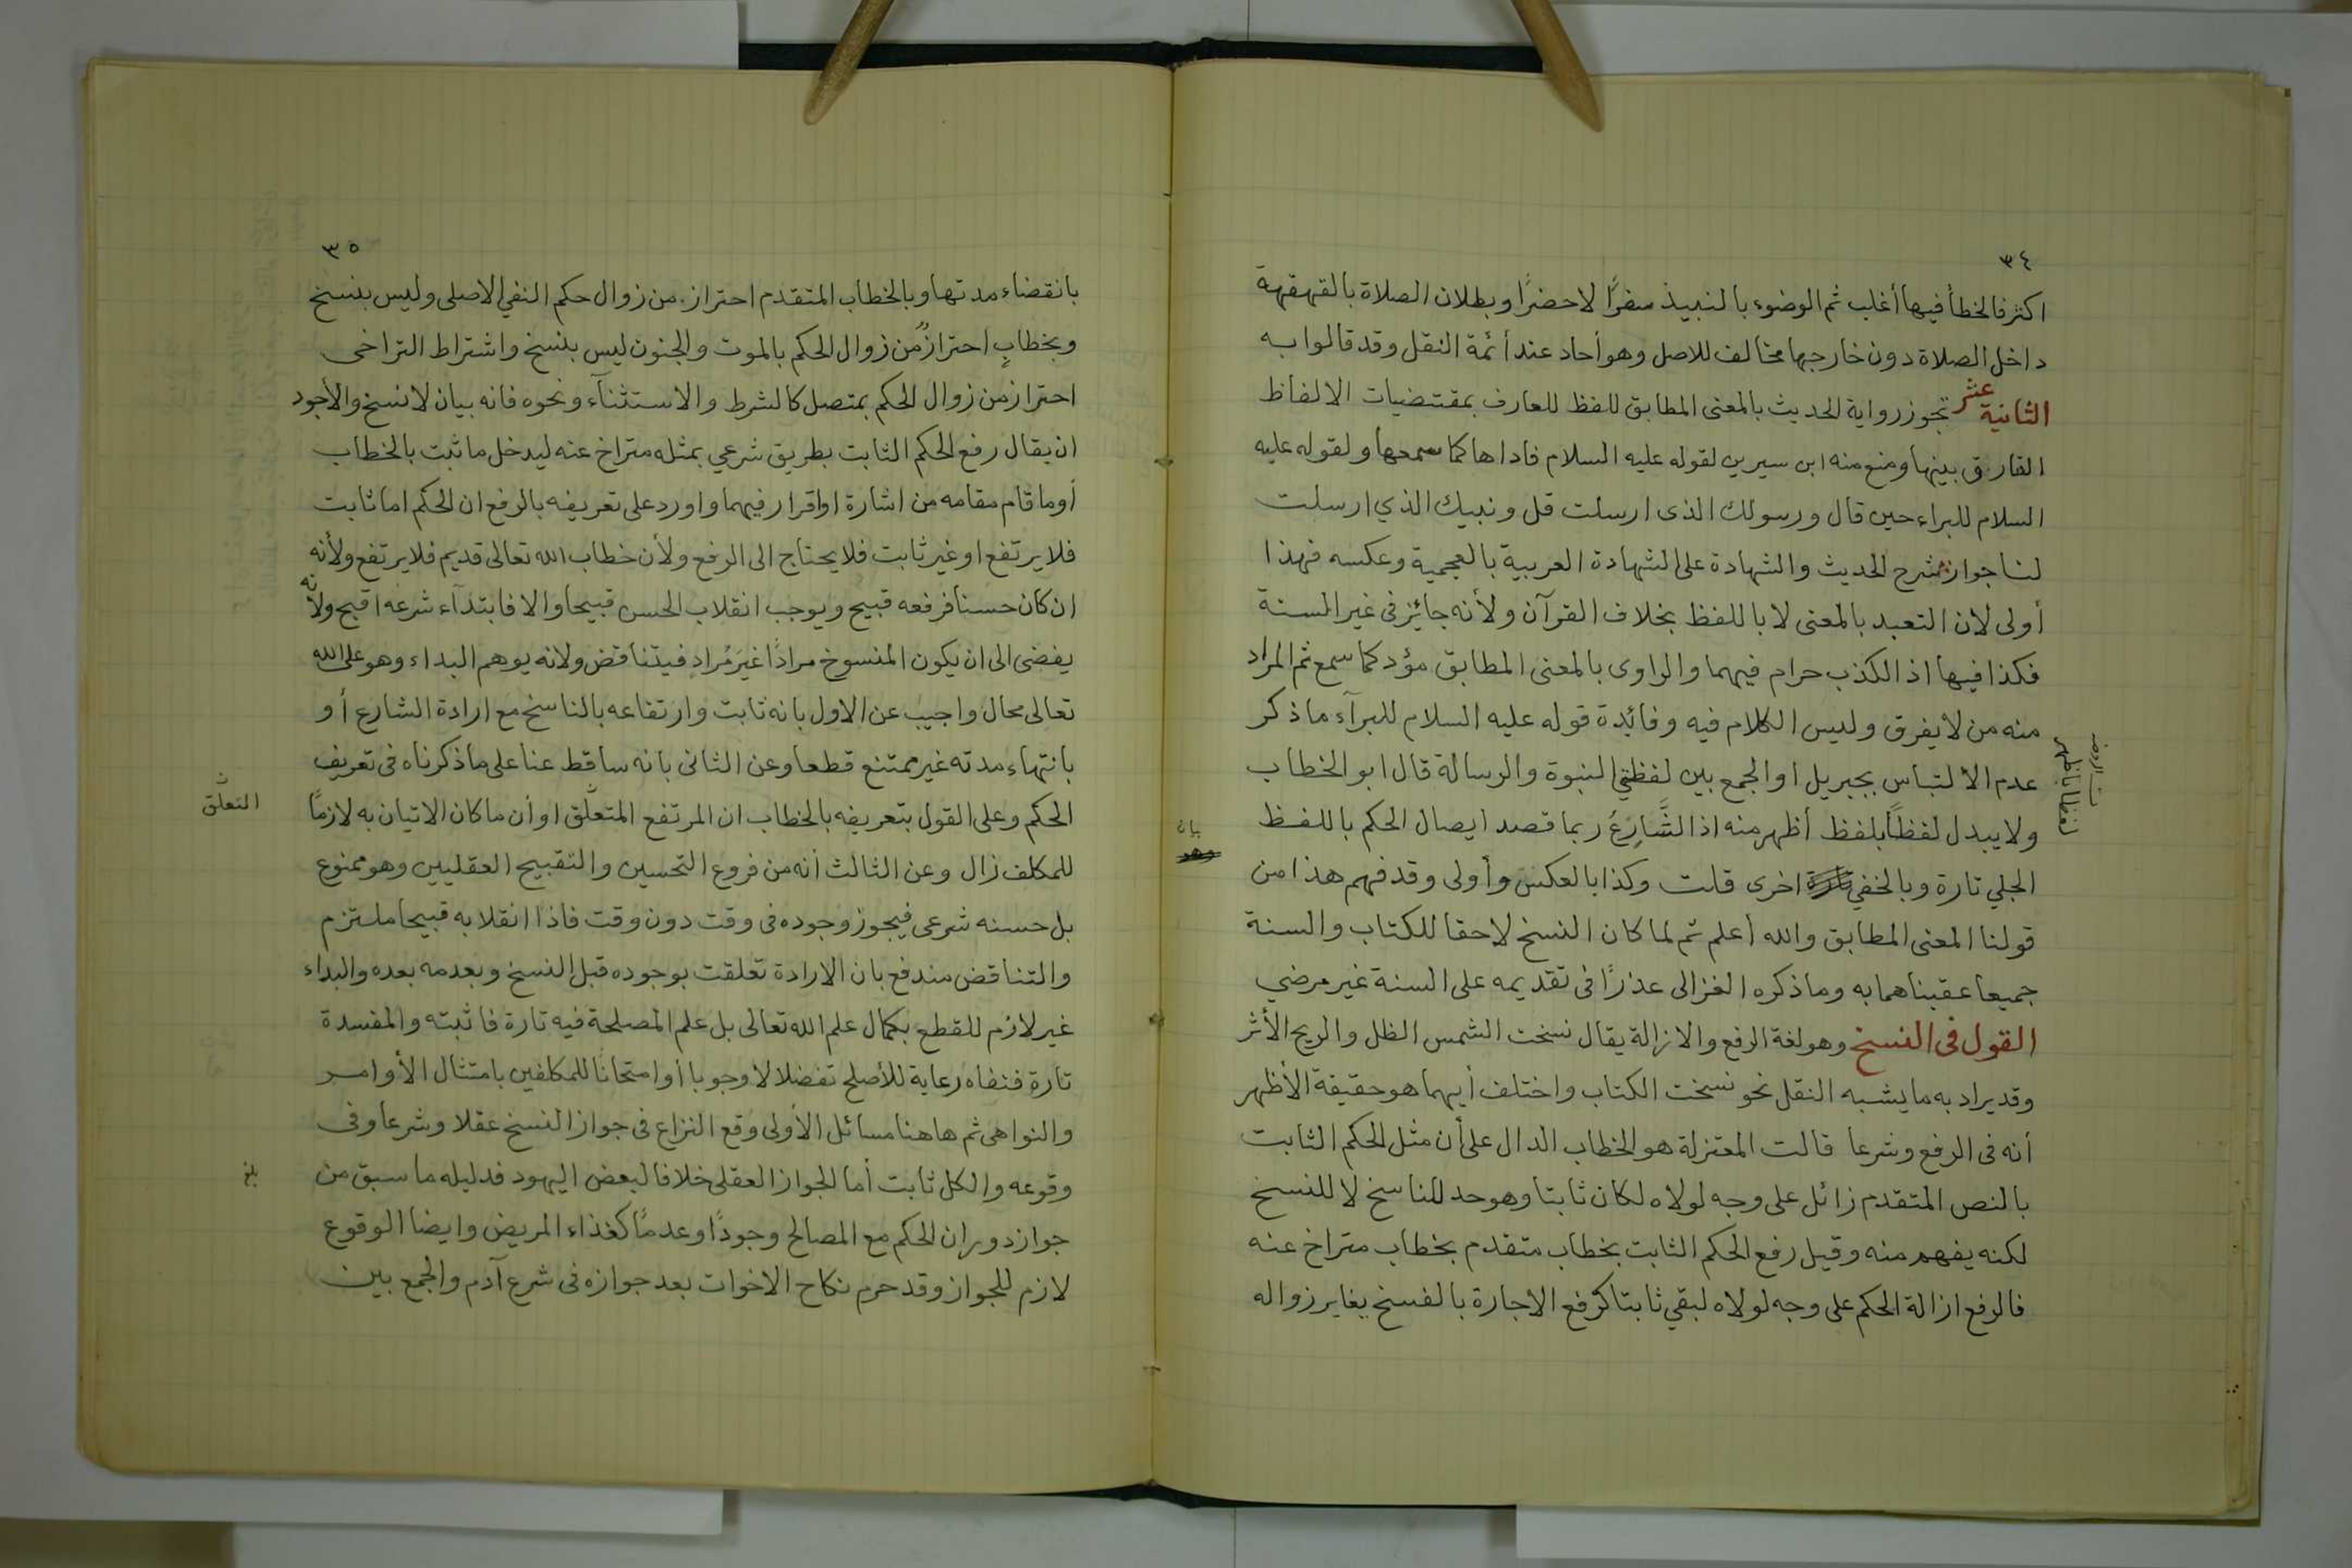 ٣٤
اكثر فالخطأ فيها أغلب ثم الوضوء بالنبيذ سفرًا لا حضرًا وبطلان الصلاة بالقهقهة
داخل الصلاة دون خارجها مخالف للاصل وهو أحاد عند أئمة النقل وقد قالوا به
الثانية عشر تجوز رواية الحديث بالمعنى المطابق للفظ للعارف بمقتضيات الالفاظ
الفارق بينها ومنع منه ابن سيرين لقوله عليه السلام فاداها كما سمعها ولقوله عليه
السلام للبراء حين قال ورسولك الذى ارسلت قل ونبيك الذي ارسلت
لنا جواز شرح الحديث والشهادة على الشهادة العربية بالعجمية وعكسه فهذا
أولى لان التعبد بالمعنى لا باللفظ بخلاف القرآن ولأنه جائز فى غير السنة
فكذا فيها اذ الكذب حرام فيهما والراوى بالمعنى المطابق مؤد كما سمع ثم المراد
منه من لا يفرق وليس الكلام فيه وفائدة قوله عليه السلام للبرآء ما ذكر
عدم الالتباس بجبريل او الجمع بين لفظتي النبوة والرسالة قال ابو الخطاب
ولا يبدل لفظاً بلفظ أظهر منه اذ الشَّارِعُ ربما قصد ايصال الحكم باللفظ
الجلي تارة وبالخفي تارة اخرى قلت وكذا بالعكس وأولى وقد فهم هذا من
قولنا المعنى المطابق والله أعلم ثم لما كان النسخ لاحقا للكتاب والسنة
جميعا عقبناهما به وما ذكره الغزالى عذرًا فى تقديمه على السنة غير مرضي
القول فى النسخ وهو لغة الرفع والازالة يقال نسخت الشمس الظل والريح الأثر
وقد يراد به ما يشبه النقل نحو نسخت الكتاب واختلف أيهما هو حقيقة الأظهر
أنه فى الرفع وشرعا قالت المعتزلة هو الخطاب الدال على أن مثل الحكم الثابت
بالنص المتقدم زائل على وجه لولاه لكان ثابتا وهو حد للناسخ لا للنسخ
لكنه يفهم منه وقيل رفع الحكم الثابت بخطاب متقدم بخطاب متراخ عنه
فالرفع ازالة الحكم على وجه لولاه لبقي ثابتا كرفع الاجارة بالفسخ يغاير زواله
بيان
وهو
٣٥
بانقضاء مدتها وبالخطاب المتقدم احتراز من زوال حكم النفي الاصلى وليس بنسخ
وبخطابٍ احترازٌ من زوال الحكم بالموت والجنون ليس بنسخ واشتراط التراخى
احتراز من زوال الحكم بمتصل كالشرط والاستثنآء ونحوه فانه بيان لا نسخ والأجود
ان يقال رفع الحكم الثابت بطريق شرعي بمثله متراخ عنه ليدخل ما ثبت بالخطاب
أو ما قام مقامه من اشارة او اقرار فيهما واورد على تعريفه بالرفع ان الحكم اما ثابت
فلا يرتفع او غير ثابت فلا يحتاج الى الرفع ولأن خطاب الله تعالى قديم فلا يرتفع ولأنه
ان كان حسنا فرفعه قبيح ويوجب انقلاب الحسن قبيحا والا فابتدآء شرعه اقبح ولأنه
يفضى الى ان يكون المنسوخ مرادًا غيرَ مُراد فيتناقض ولانه يوهم البداء وهو على الله
تعالى محال واجيب عن الاول بانه ثابت وارتفاعه بالناسخ مع ارادة الشارع أو
بانتهاء مدته غير ممتنع قطعا وعن الثانى بانه ساقط عنا على ما ذكرناه فى تعريف
الحكم وعلى القول بتعريفه بالخطاب ان المرتفع المتعلّق او أن ما كان الاتيان به لازمًا
للمكلف زال وعن الثالث أنه من فروع التحسين والتقبيح العقليين وهو ممنوع
بل حسنه شرعى فيجوز وجوده فى وقت دون وقت فاذا انقلابه قبيحا ملتزم
والتناقض مندفع بان الارادة تعلقت بوجوده قبل النسخ وبعدمه بعده والبداء
غير لازم للقطع بكمال علم الله تعالى بل علم المصلحة فيه تارة فاثبته والمفسدة
تارة فنفاه رعاية للأصلح تفضلا لا وجوبا أو امتحانا للمكلفين بامتثال الأوامر
والنواهى ثم هاهنا مسائل الأولى وقع النزاع فى جواز النسخ عقلا وشرعا وفى
وقوعه والكل ثابت أما الجواز العقلى خلافا لبعض اليهود فدليله ما سبق من
جواز دوران الحكم مع المصالح وجودًا وعدمًا كغذاء المريض وايضا الوقوع
لازم للجواز وقد حرم نكاح الاخوات بعد جوازه فى شرع آدم والجمع بين
التعلّق
بلغ